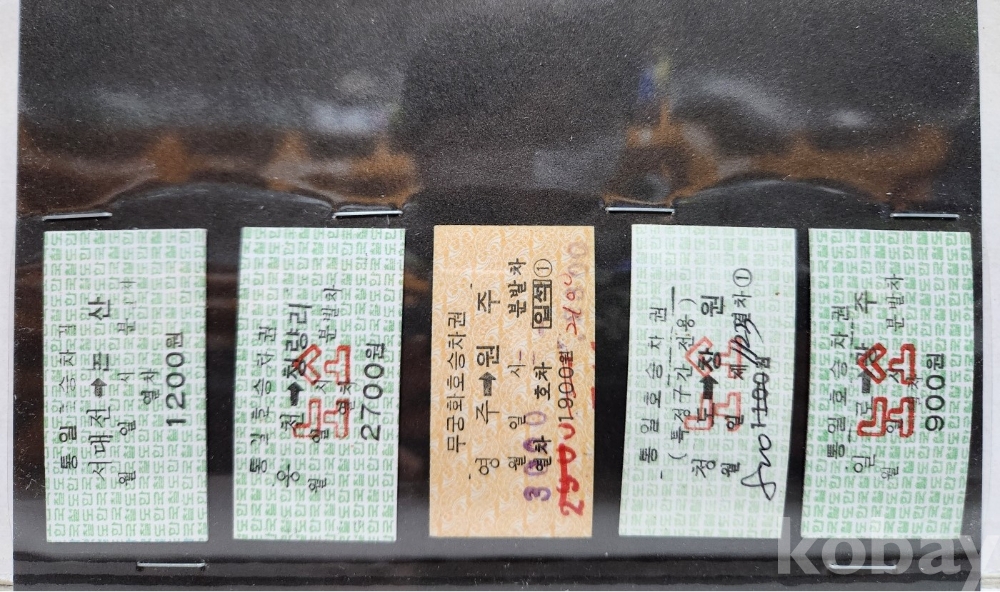 통일호승차권
서대전➡논산
월 일 시 분
열차
1200원
통일호승차권
웅 천➡청량리
월 일 시 분발차
열차
2700원
노소
무궁화호승차권
영 주➡원 주
월 일 시 분발차
열차 호차 입석①
1900원
3000
통일호승차권
(특정구간전용)
청 도➡창 원
월 일 제 열차①
1100원
노소
통일호승차권
월 일 시 분발차
900원
노소
kobay